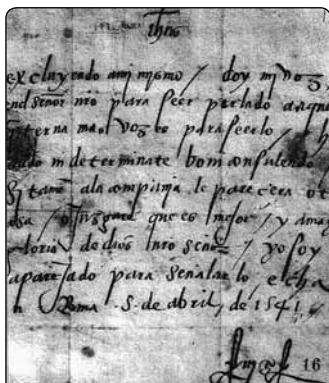 Jhus
excluyendo a mi mismo / doy mi voz
señor nro para seer perlado aquel
terna mas vozes para seerlo /
do indeterminate boni consulendo
si tamen a la compañia le parecera
juzgare que es mejor / y a ma
gloria de dios nro señor / yo soy
aparejado para señalarlo echa
n Roma 5 de abril de 1541
16